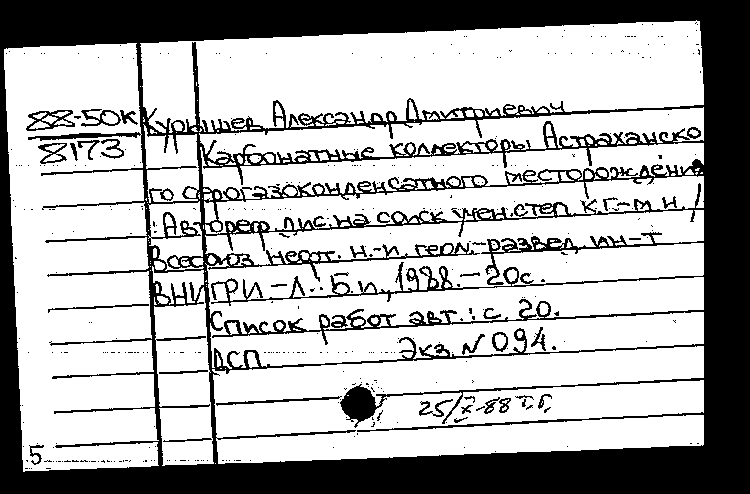 88-50к Курышев, Александр Дмитриевич
8173 Карбонатные коллекторы Астраханско
го серогазоконденсатного месторождения
: Автореф. дис. на соиск учен. степ. к.г.-м.н. /
Всесоюз нефт. н.-и. геол.-развед. ин-т
ВНИГРИ. - Л.: Б.и., 1988. - 20с.
Список работ авт.: с. 20.
ДСП. Экз. N 094.
25/X-88 Т.Г.
5